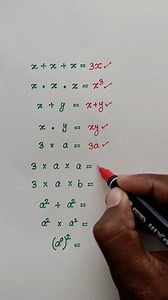 x + x + x = 3x ✓
x • x • x = x³ ✓
x + y = x+y ✓
x • y = xy ✓
3 × a = 3a ✓
3 × a × a =
3 × a × b =
a² + a² =
a² × a² =
(a⁰)² =